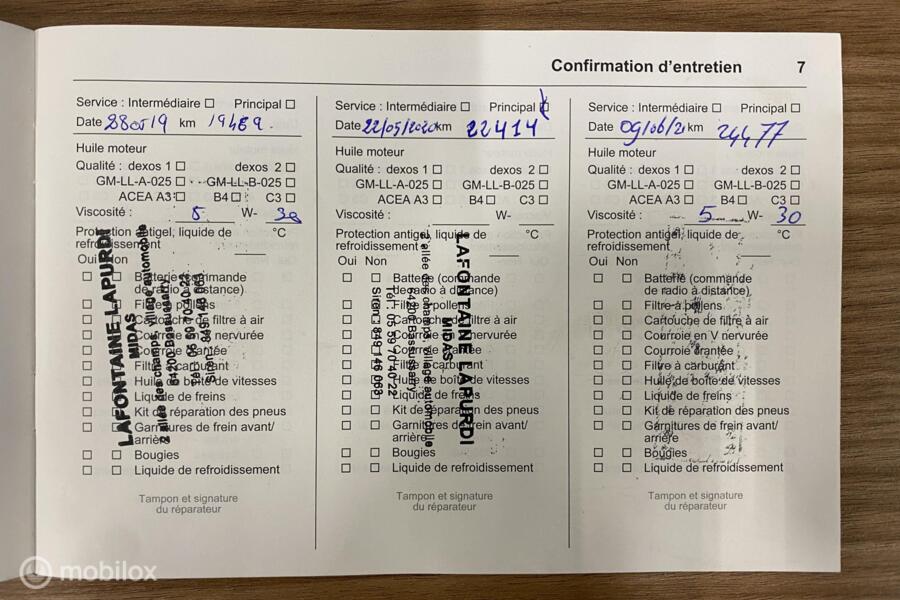 Confirmation d'entretien 7
Service : Intermédiaire ☐ Principal ☐
Date 28 05 19 km 19489.
Huile moteur
Qualité : dexos 1 ☐ dexos 2 ☐
GM-LL-A-025 ☐ GM-LL-B-025 ☐
ACEA A3 ☐ B4 ☐ C3 ☐
Viscosité : 5 W- 30
Protection antigel, liquide de refroidissement °C
Oui Non
☐ ☐ Batterie (commande
de radio à distance)
☐ ☐ Filtre à pollens
☐ ☐ Cartouche de filtre à air
☐ ☐ Courroie en V nervurée
☐ ☐ Courroie crantée
☐ ☐ Filtre à carburant
☐ ☐ Huile de boîte de vitesses
☐ ☐ Liquide de freins
☐ ☐ Kit de réparation des pneus
☐ ☐ Garnitures de frein avant/
arrière
☐ ☐ Bougies
☐ ☐ Liquide de refroidissement
LAFONTAINE LAPURDI
MIDAS
2 allée des champs, village automobile
64200 Bassussarry
Tampon et signature
du réparateur
Service : Intermédiaire ☐ Principal ☐
Date 22/05/2020 km 22414
Huile moteur
Qualité : dexos 1 ☐ dexos 2 ☐
GM-LL-A-025 ☐ GM-LL-B-025 ☐
ACEA A3 ☐ B4 ☐ C3 ☐
Viscosité : W-
Protection antigel, liquide de
refroidissement °C
Oui Non
☐ ☐ Batterie (commande
de radio à distance)
☐ ☐ Filtre à pollens
☐ ☐ Cartouche de filtre à air
☐ ☐ Courroie en V nervurée
☐ ☐ Courroie crantée
☐ ☐ Filtre à carburant
☐ ☐ Huile de boîte de vitesses
☐ ☐ Liquide de freins
☐ ☐ Kit de réparation des pneus
☐ ☐ Garnitures de frein avant/
arrière
☐ ☐ Bougies
☐ ☐ Liquide de refroidissement
LAFONTAINE LAPURDI
MIDAS
2 allée des champs, village automobile
64200 Bassussarry
Tel. 05 59 70 40 22
Siren : 849 146 063
Tampon et signature
du réparateur
Service : Intermédiaire ☐ Principal ☐
Date 09/06/21 km 24477
Huile moteur
Qualité : dexos 1 ☐ dexos 2 ☐
GM-LL-A-025 ☐ GM-LL-B-025 ☐
ACEA A3 ☐ B4 ☐ C3 ☐
Viscosité : 5 W- 30
Protection antigel, liquide de
refroidissement °C
Oui Non
☐ ☐ Batterie (commande
de radio à distance)
☐ ☐ Filtre à pollens
☐ ☐ Cartouche de filtre à air
☐ ☐ Courroie en V nervurée
☐ ☐ Courroie crantée
☐ ☐ Filtre à carburant
☐ ☐ Huile de boîte de vitesses
☐ ☐ Liquide de freins
☐ ☐ Kit de réparation des pneus
☐ ☐ Garnitures de frein avant/
arrière
☐ ☐ Bougies
☐ ☐ Liquide de refroidissement
Tampon et signature
du réparateur
mobilox